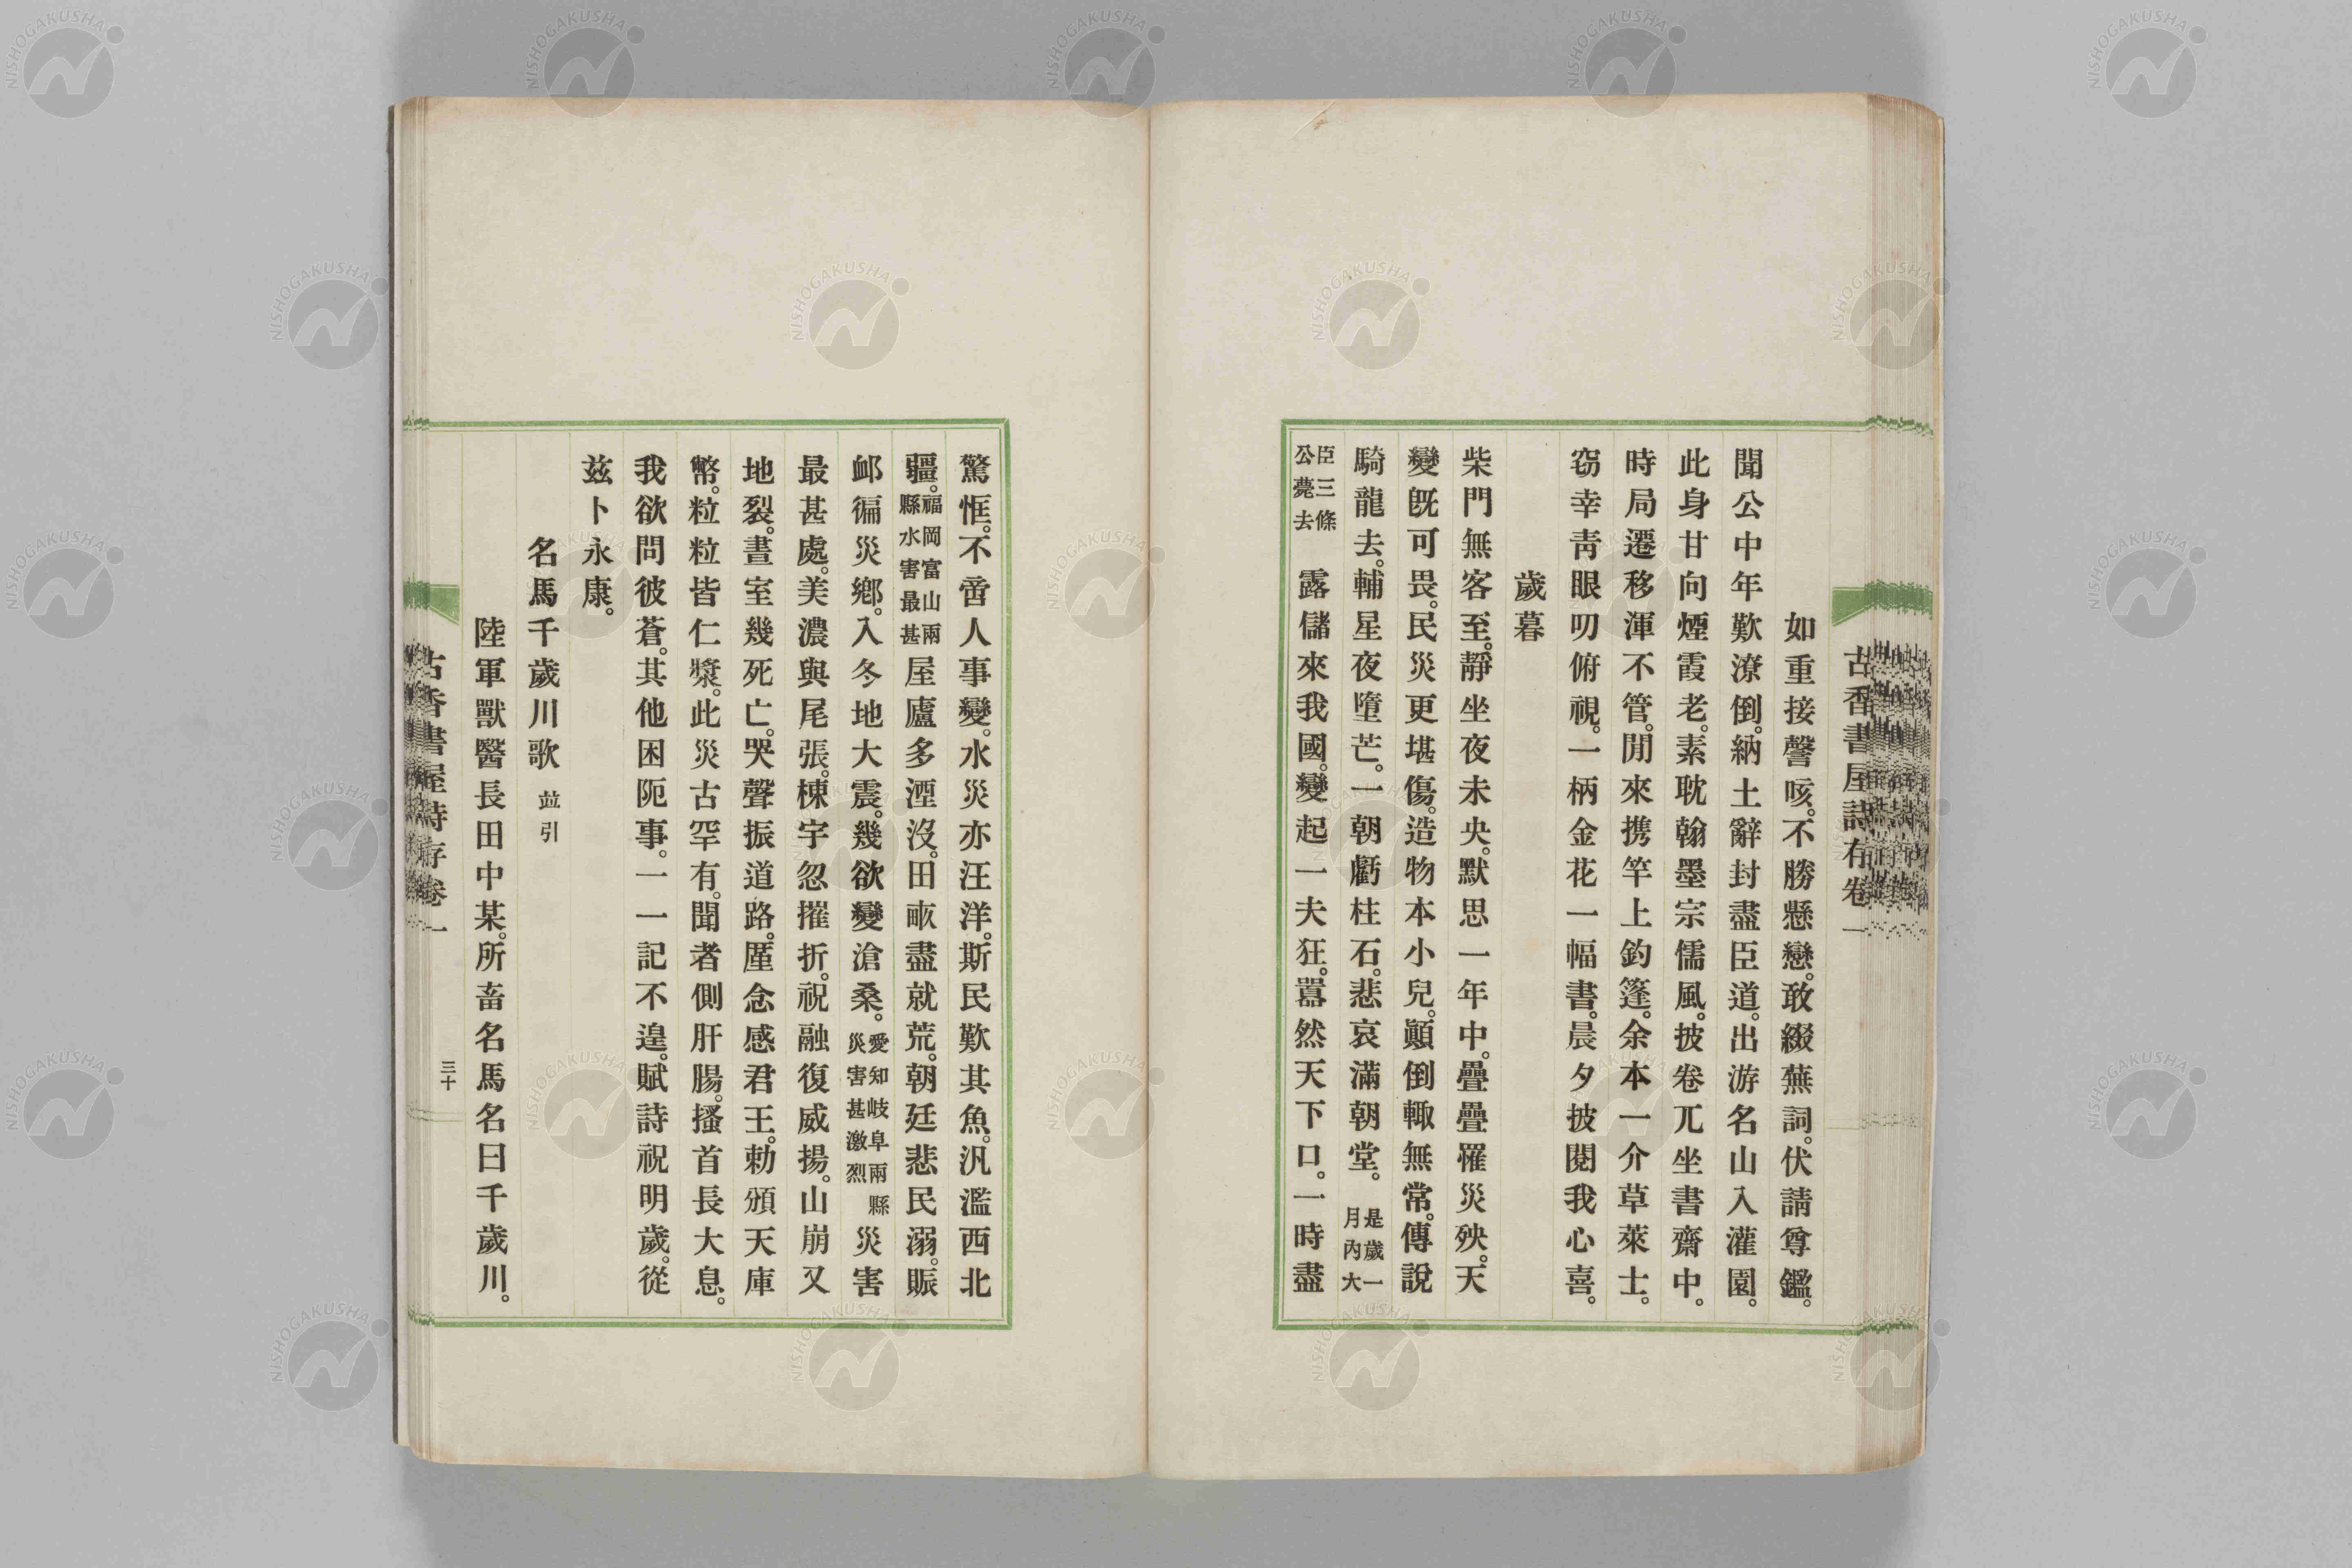 古香書屋詩存卷一
如重接謦咳。不勝懸戀。敢綴蕪詞。伏請尊鑑。
聞公中年歎潦倒。納土辭封盡臣道。出游名山入灌園。
此身甘向煙霞老。素耽翰墨宗儒風。披卷兀坐書齋中。
時局遷移渾不管。閒來携竿上釣篷。余本一介草萊士。
窃幸靑眼叨俯視。一柄金花一幅書。晨夕披閱我心喜。
歲暮
柴門無客至。靜坐夜未央。默思一年中。疊疊罹災殃。天
變旣可畏。民災更堪傷。造物本小兒。顚倒輙無常。傳說
騎龍去。輔星夜墮芒。一朝虧柱石。悲哀滿朝堂。是歲一月內大
臣三條公薨去 露儲來我國。變起一夫狂。囂然天下口。一時盡
驚恇。不啻人事變。水災亦汪洋。斯民歎其魚。汎濫西北
疆。福岡富山兩縣水害最甚 屋廬多湮沒。田畞盡就荒。朝廷悲民溺。賑
邺徧災鄕。入冬地大震。幾欲變滄桑。愛知岐阜兩縣災害甚激烈 災害
最甚處。美濃與尾張。棟宇忽摧折。祝融復威揚。山崩又
地裂。晝室幾死亡。哭聲振道路。厪念感君王。勅頒天庫
幣。粒粒皆仁漿。此災古罕有。聞者側肝腸。搔首長大息。
我欲問彼蒼。其他困阨事。一一記不遑。賦詩祝明歲。從
茲卜永康。
名馬千歲川歌 並引
陸軍獸醫長田中某。所畜名馬名曰千歲川。
古香書屋詩存卷一
三十
NISHOGAKUSHA